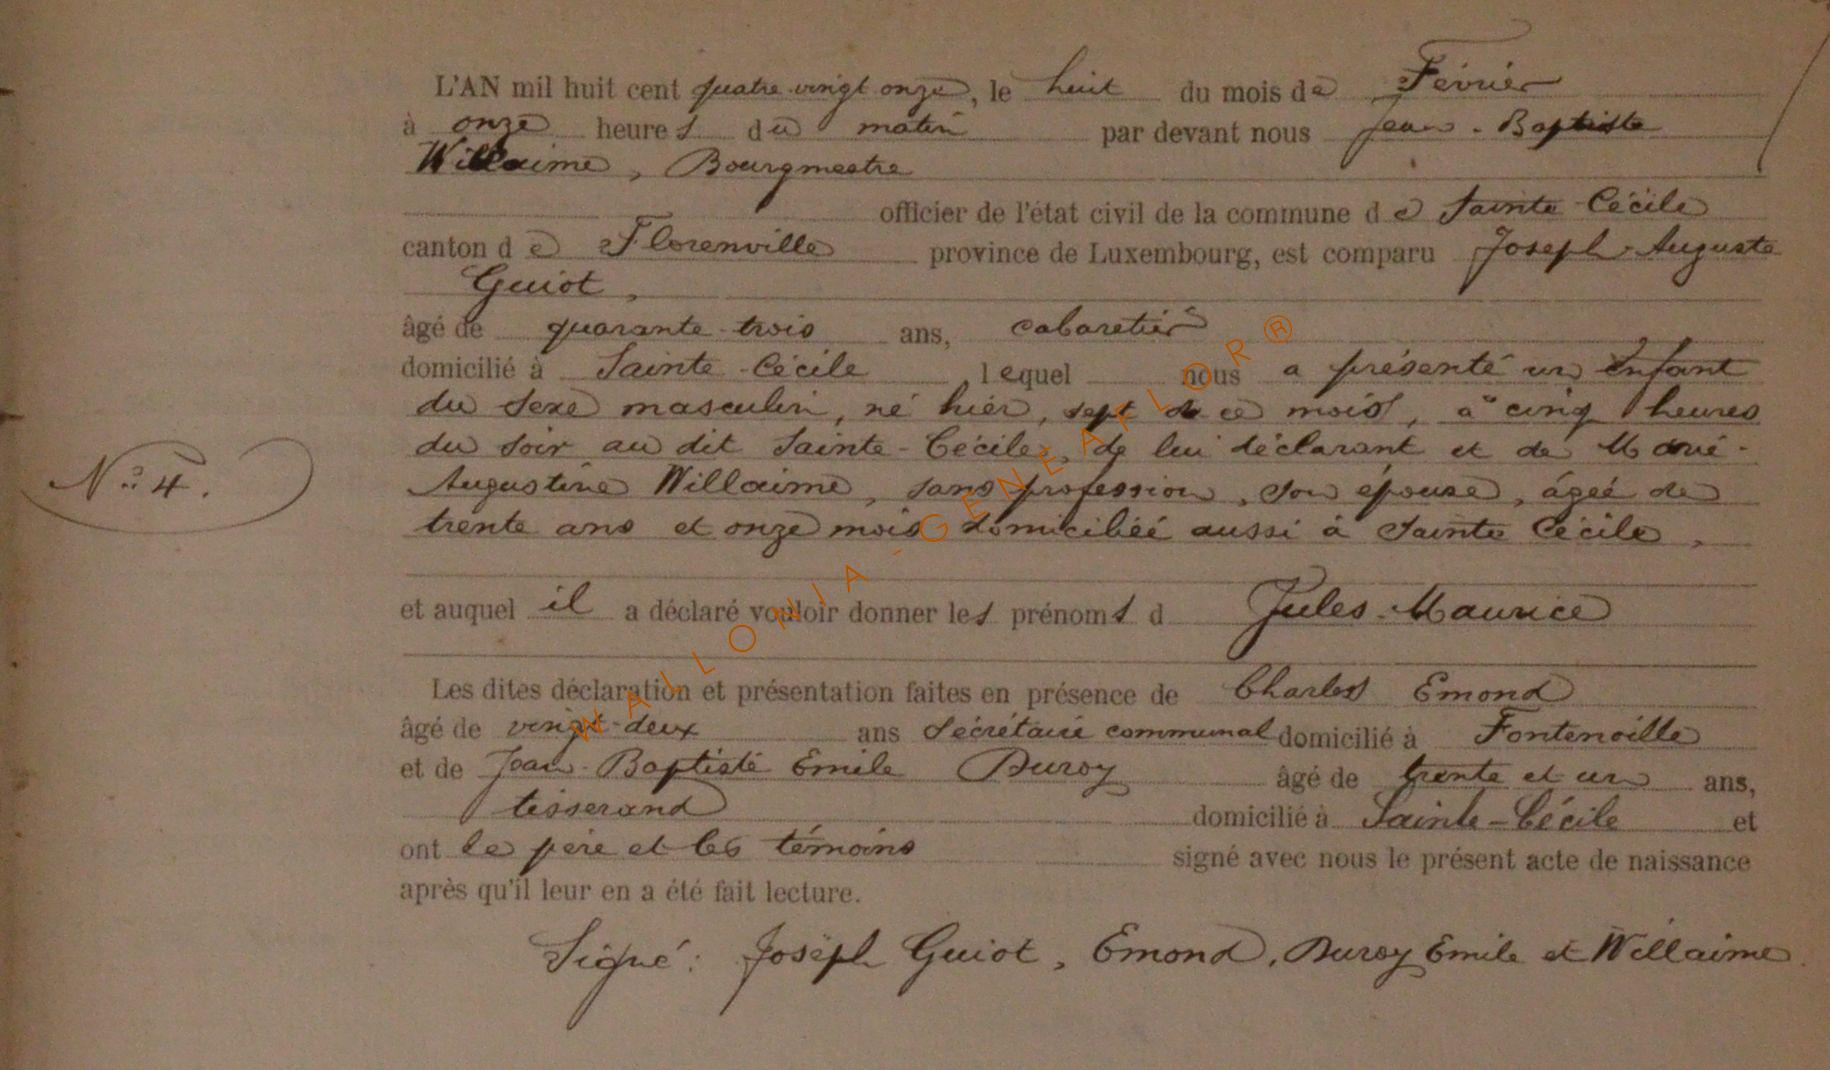 L'AN mil huit cent quatre-vingt onze, le huit du mois de Février
à onze heures du matin par devant nous Jean-Baptiste
Willaime, Bourgmestre
officier de l'état civil de la commune de Sainte-Cécile
canton de Florenville province de Luxembourg, est comparu Joseph-Auguste
Guiot,
âgé de quarante-trois ans, cabaretier
domicilié à Sainte-Cécile, lequel nous a présenté un enfant
du sexe masculin, né hier, sept de ce mois, à cinq heures
du soir au dit Sainte-Cécile, de lui déclarant et de Marie-
N° 4.
Augustine Willaime, sans profession, son épouse, âgée de
trente ans et onze mois domiciliée aussi à Sainte Cécile,
et auquel il a déclaré vouloir donner les prénoms d Jules-Maurice
Les dites déclaration et présentation faites en présence de Charles Emond
âgé de vingt-deux ans Secrétaire communal domicilié à Fontenoille
et de Jean-Baptiste Emile Duroy âgé de trente et un ans,
tisserand domicilié à Sainte-Cécile et
ont le père et les témoins signé avec nous le présent acte de naissance
après qu'il leur en a été fait lecture.
Signé: Joseph Guiot, Emond, Duroy Emile et Willaime.
WALLONIA-GENEAFLOR®